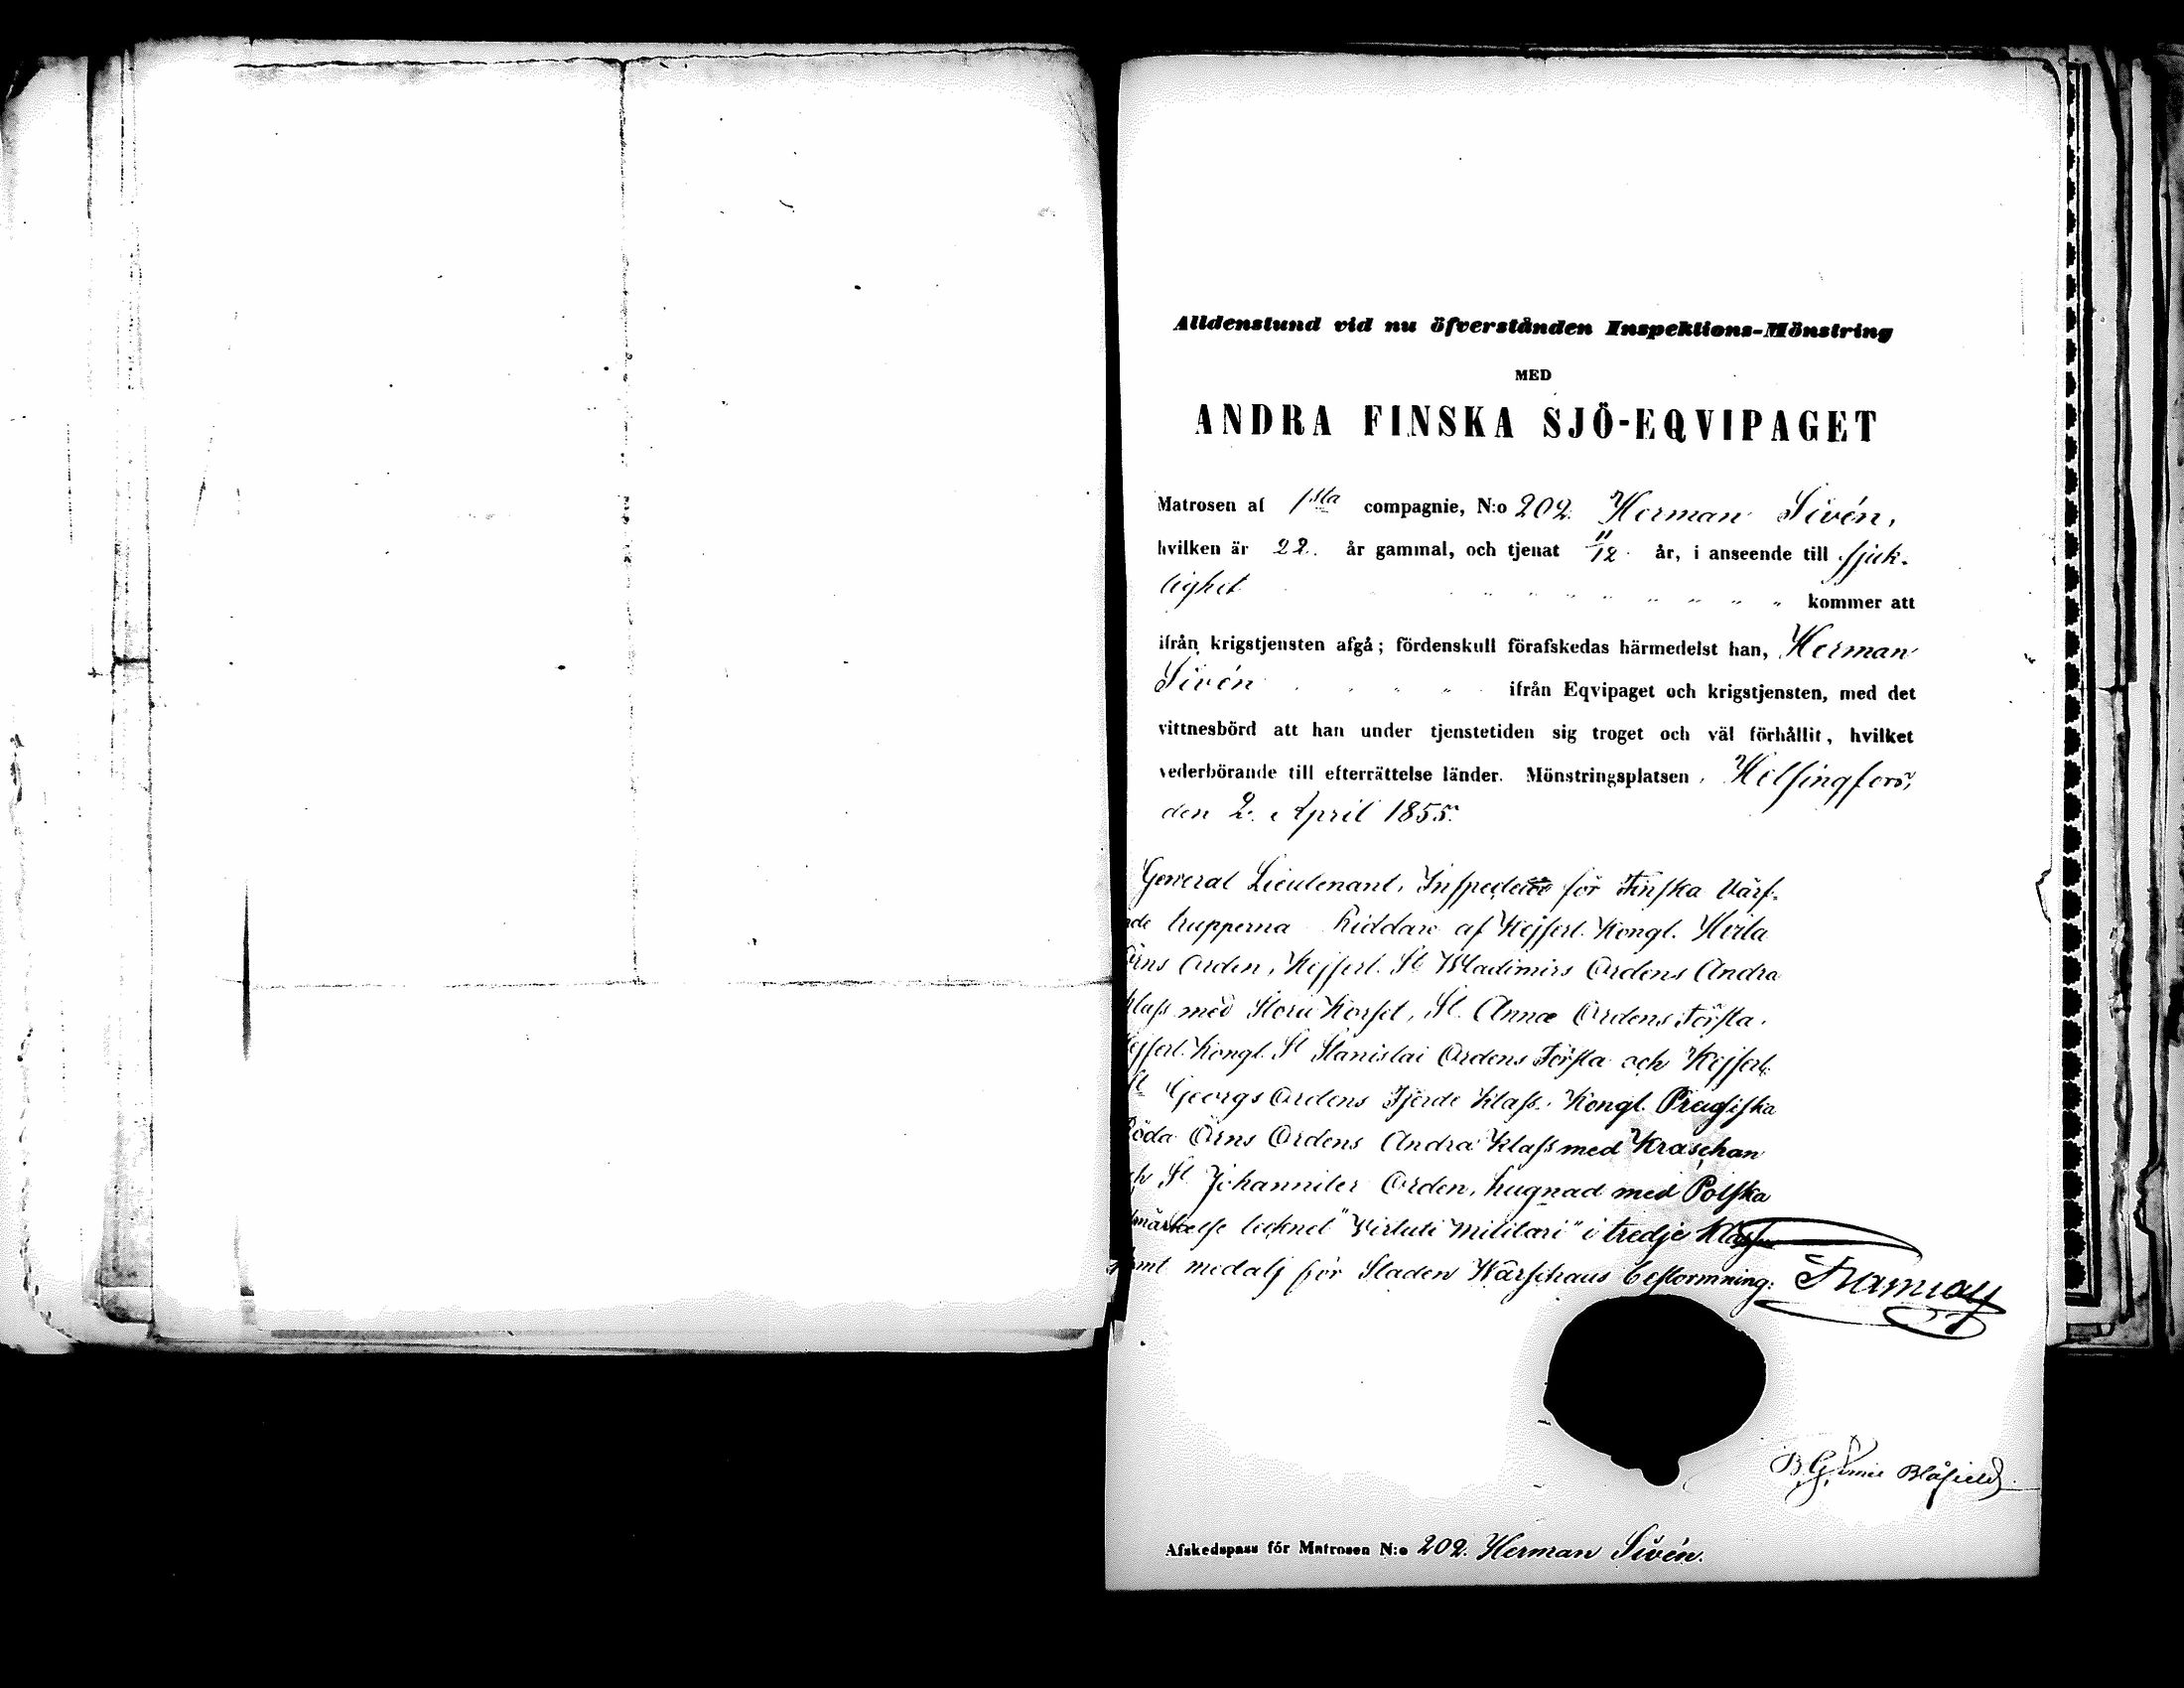 Alldenstund vid nu öfverstånden Inspektions-Mönstring
MED
ANDRA FINSKA SJÖ-EQVIPAGET
Matrosen af 1sta compagnie, N:o 202. Herman Sivén,
hvilken är 22. år gammal, och tjenat 11/12 år, i anseende till sjuk-
lighet kommer att
ifrån krigstjensten afgå; fördenskull förafskedas härmedelst han, Herman
Sivén ifrån Eqvipaget och krigstjensten, med det
vittnesbörd att han under tjenstetiden sig troget och väl förhållit, hvilket
vederbörande till efterrättelse länder. Mönstringsplatsen, Helsingfors,
den 2. April 1855.
General Lieutenant, Inspecteur för Finska Värf-
de trupperna Riddare af Kejserl. Kongl. Hvita
Örns Orden, Kejserl. St Wladimirs Ordens Andra
Klass med Stora Korset, St. Annæ Ordens Första,
Kejserl. Kongl. St Stanislai Ordens Första och Kejserl.
St Georgs Ordens Fjerde Klass. Kongl. Preussiska
Röda Örns Ordens Andra Klass med Kraschan
och St. Johanniter Orden, hugnad med Polska
utmärkelse tecknet "Virtuti Militari" i tredje Klassen
samt medalj för Staden Warschaus bestormning:
Ramsay
B. G. Blåfield
Afskedspass för Matrosen N:o 202. Herman Sivén.